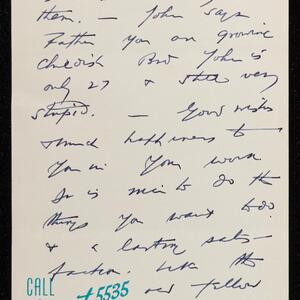 them. — John says
Father you are growing
childish But John is
only 27 & still very
stupid. — Good wishes
& much happiness to
you in your work
It is nice to do the
things you want to do
& a lasting satis-
faction. Like the
CALL #5535 old fellow